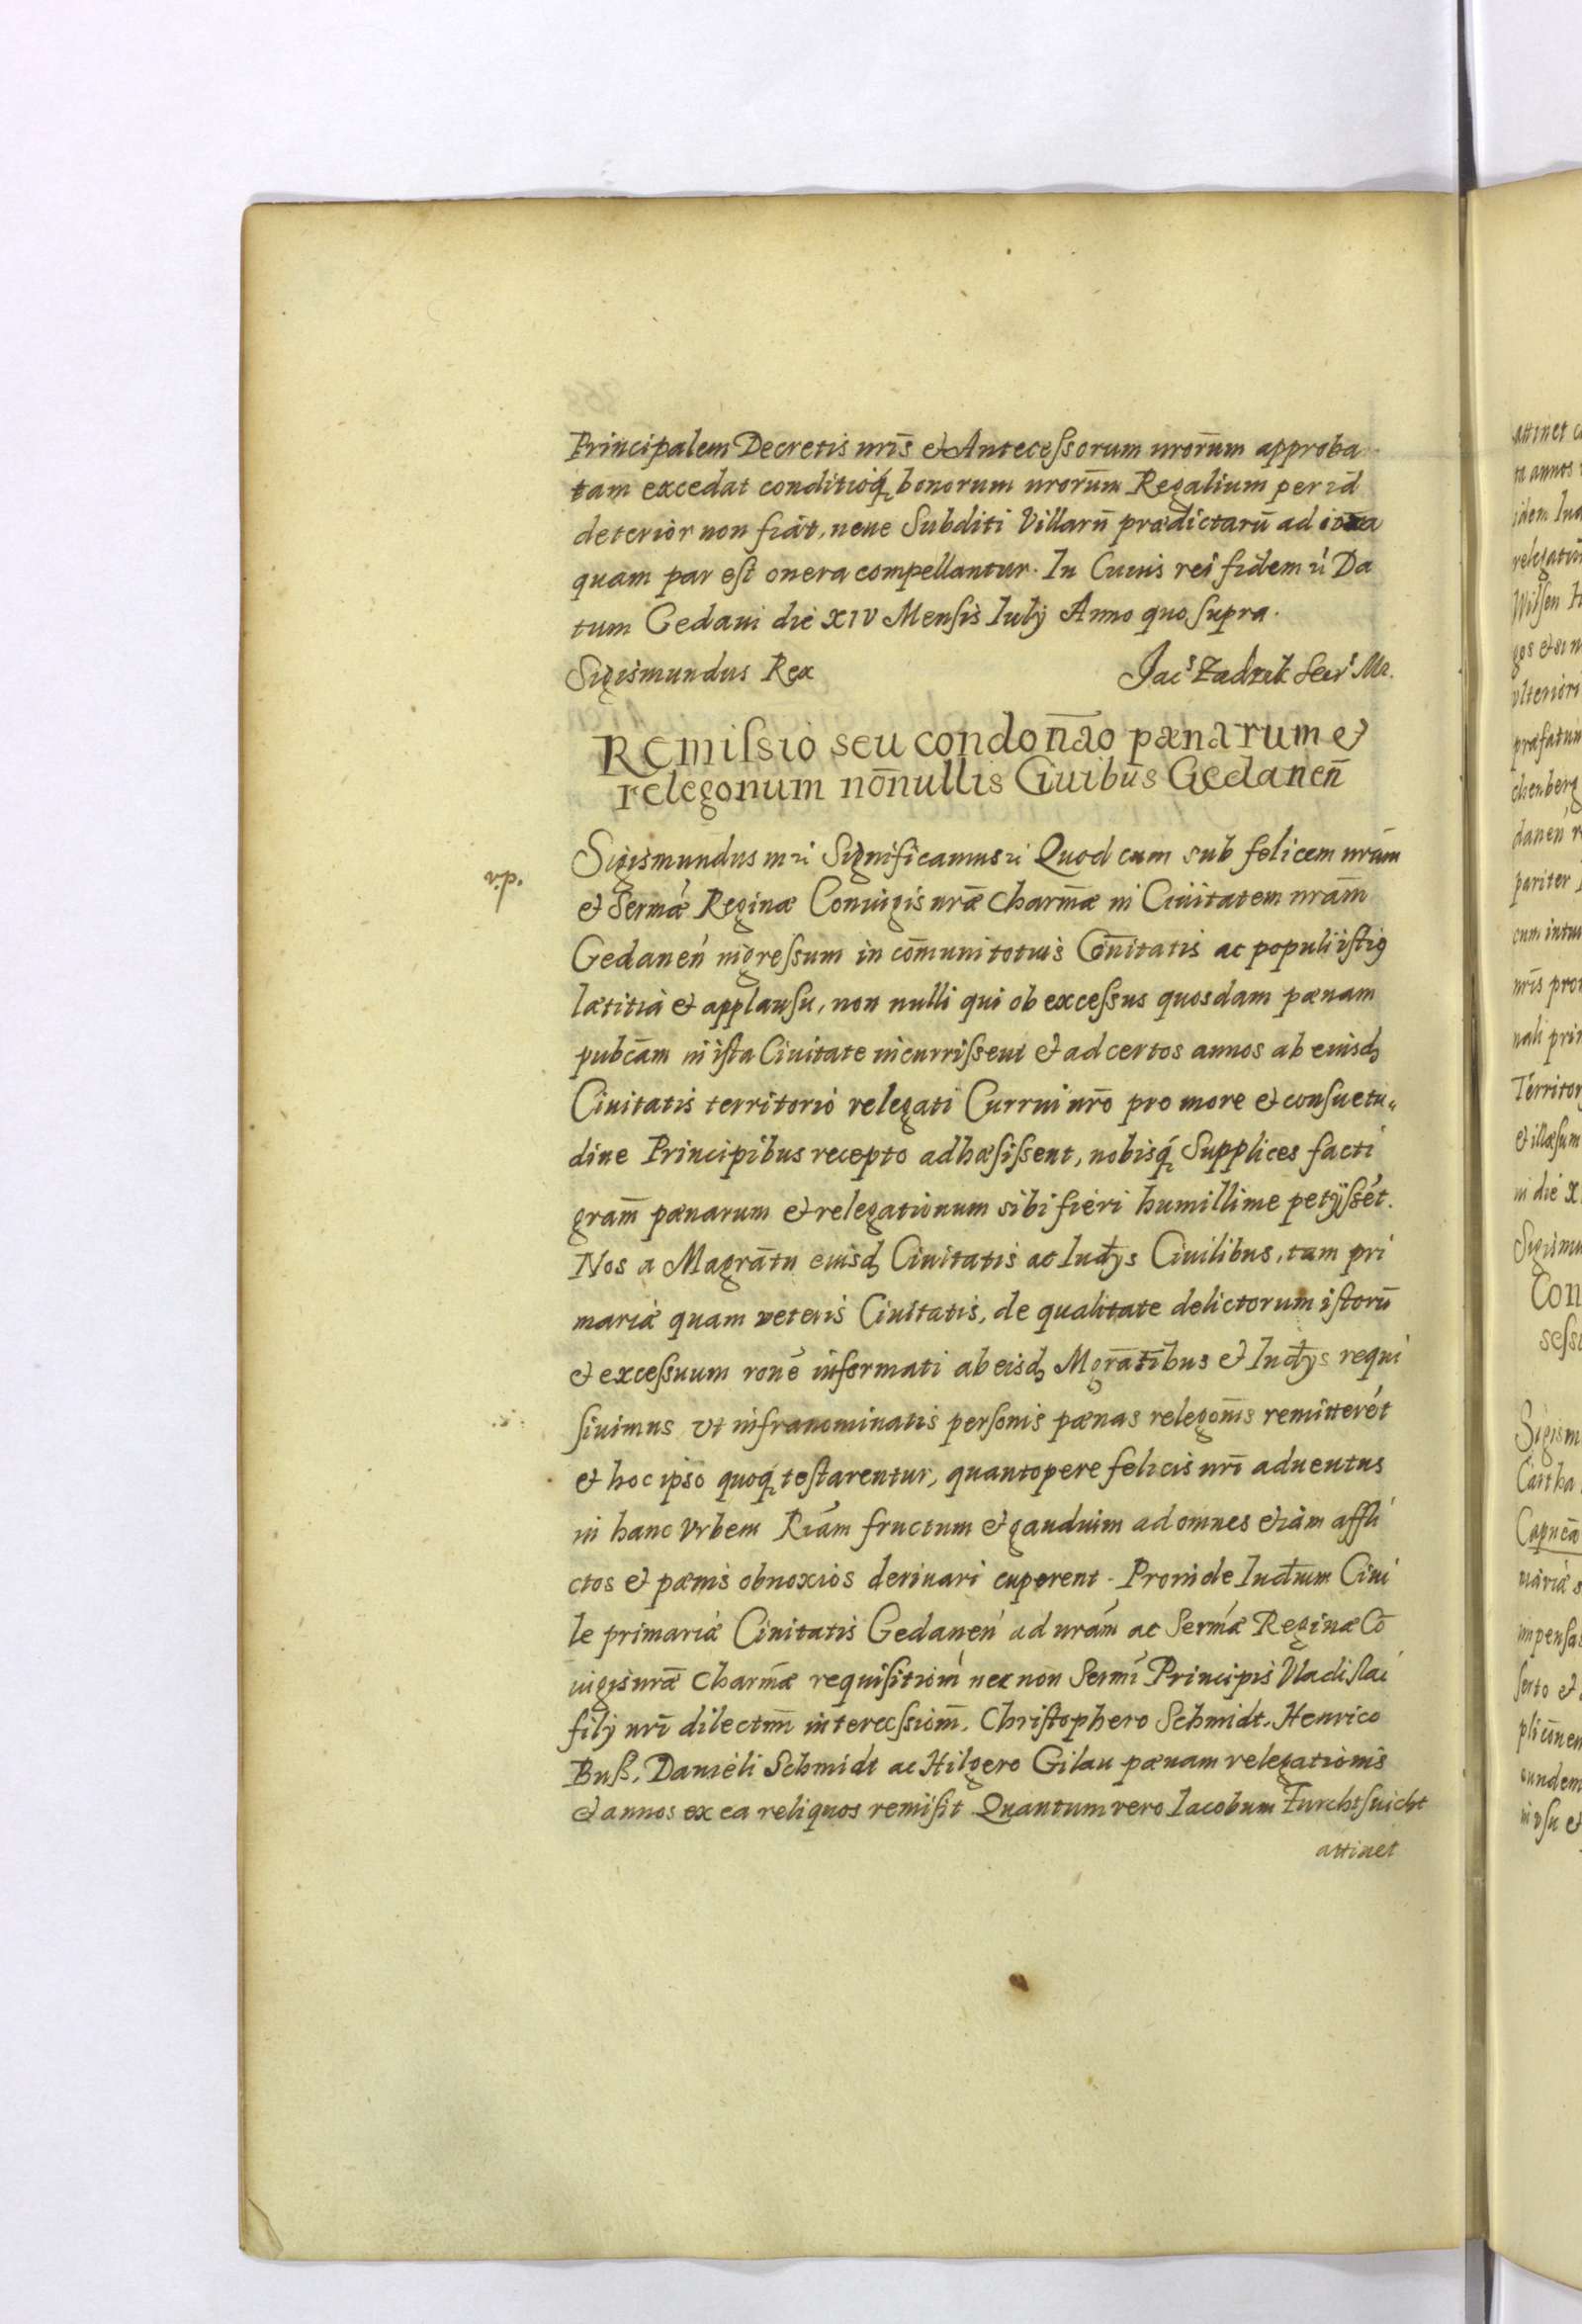 Principalem Decretis nr̄is et Antecessorum nror̄um approba
tam excedat conditioq́ bonorum nror̄um Regalium per id
deterior non fiat, neue Subditi Villarū prædictarū ad
quam par est onera compellantur. In Cuius rei fidem Da
tum Gedani die XIV Mensis Iulÿ Anno quo supra.
Sigismundus Rex Jac⁵ Zadzik Secr⁵ Mr.
Remissio seu condon̄ao pænarum et
relegonum nōnullis Ciuibus Gedanen̄
v.p.
Sigismundus Significamus Quod cum sub felicem nrām
et Sermæ Reginæ Coniugis nrǣ Charm̄æ in Ciuitatem nrām
Gedaneń ingressum in cōmuni totius Ciuitatis ac populi istiꝯ
lætitia et applausu, non nulli qui ob excessus quosdam pænam
pubcām in ista Ciuitate incurrissent et ad certos annos ab eiusd
Ciuitatis territorio relegati Currui nrō pro more et consuetu„
dine Principibus recepto adhæsissent, nobisq́ Supplices facti
gram̄ pænarum et relegationum sibi fieri humillime petÿssét.
Nos a Magrātu eiusd Ciuitatis ac Iudÿs Ciuilibus, tam pri
mariæ quam veteris Ciuitatis, de qualitate delictorum istorū
et excessuum ronē informati ab eisd Mgrātibus et Iudÿs requi
siuimus vt infranominatis personis pænas relegon̄is remitterét
et hoc ipso quoq́ testarentur, quantopere felicis nrī aduentus
in hanc Vrbem Rīam fructum et gaudium ad omnes etiam affli
ctos et pænis obnoxios deriuari cuperent. Proinde Iudium Ciui
le primariæ Ciuitatis Gedaneń ad nrám ac Sermæ Reginæ Cō
iugis nrǣ Charm̄æ requisitiom̄ nec non Sermī Principis Vladislai
filÿ nrī dilectm̄i intercessiom̄, Christophero Schmidt, Henrico
Buß, Danieli Schmidt ac Hilgero Gilau pænam relegationis
et annos ex ea reliquos remisit Quantum vero Iacobum Furchtsnicht
attinet